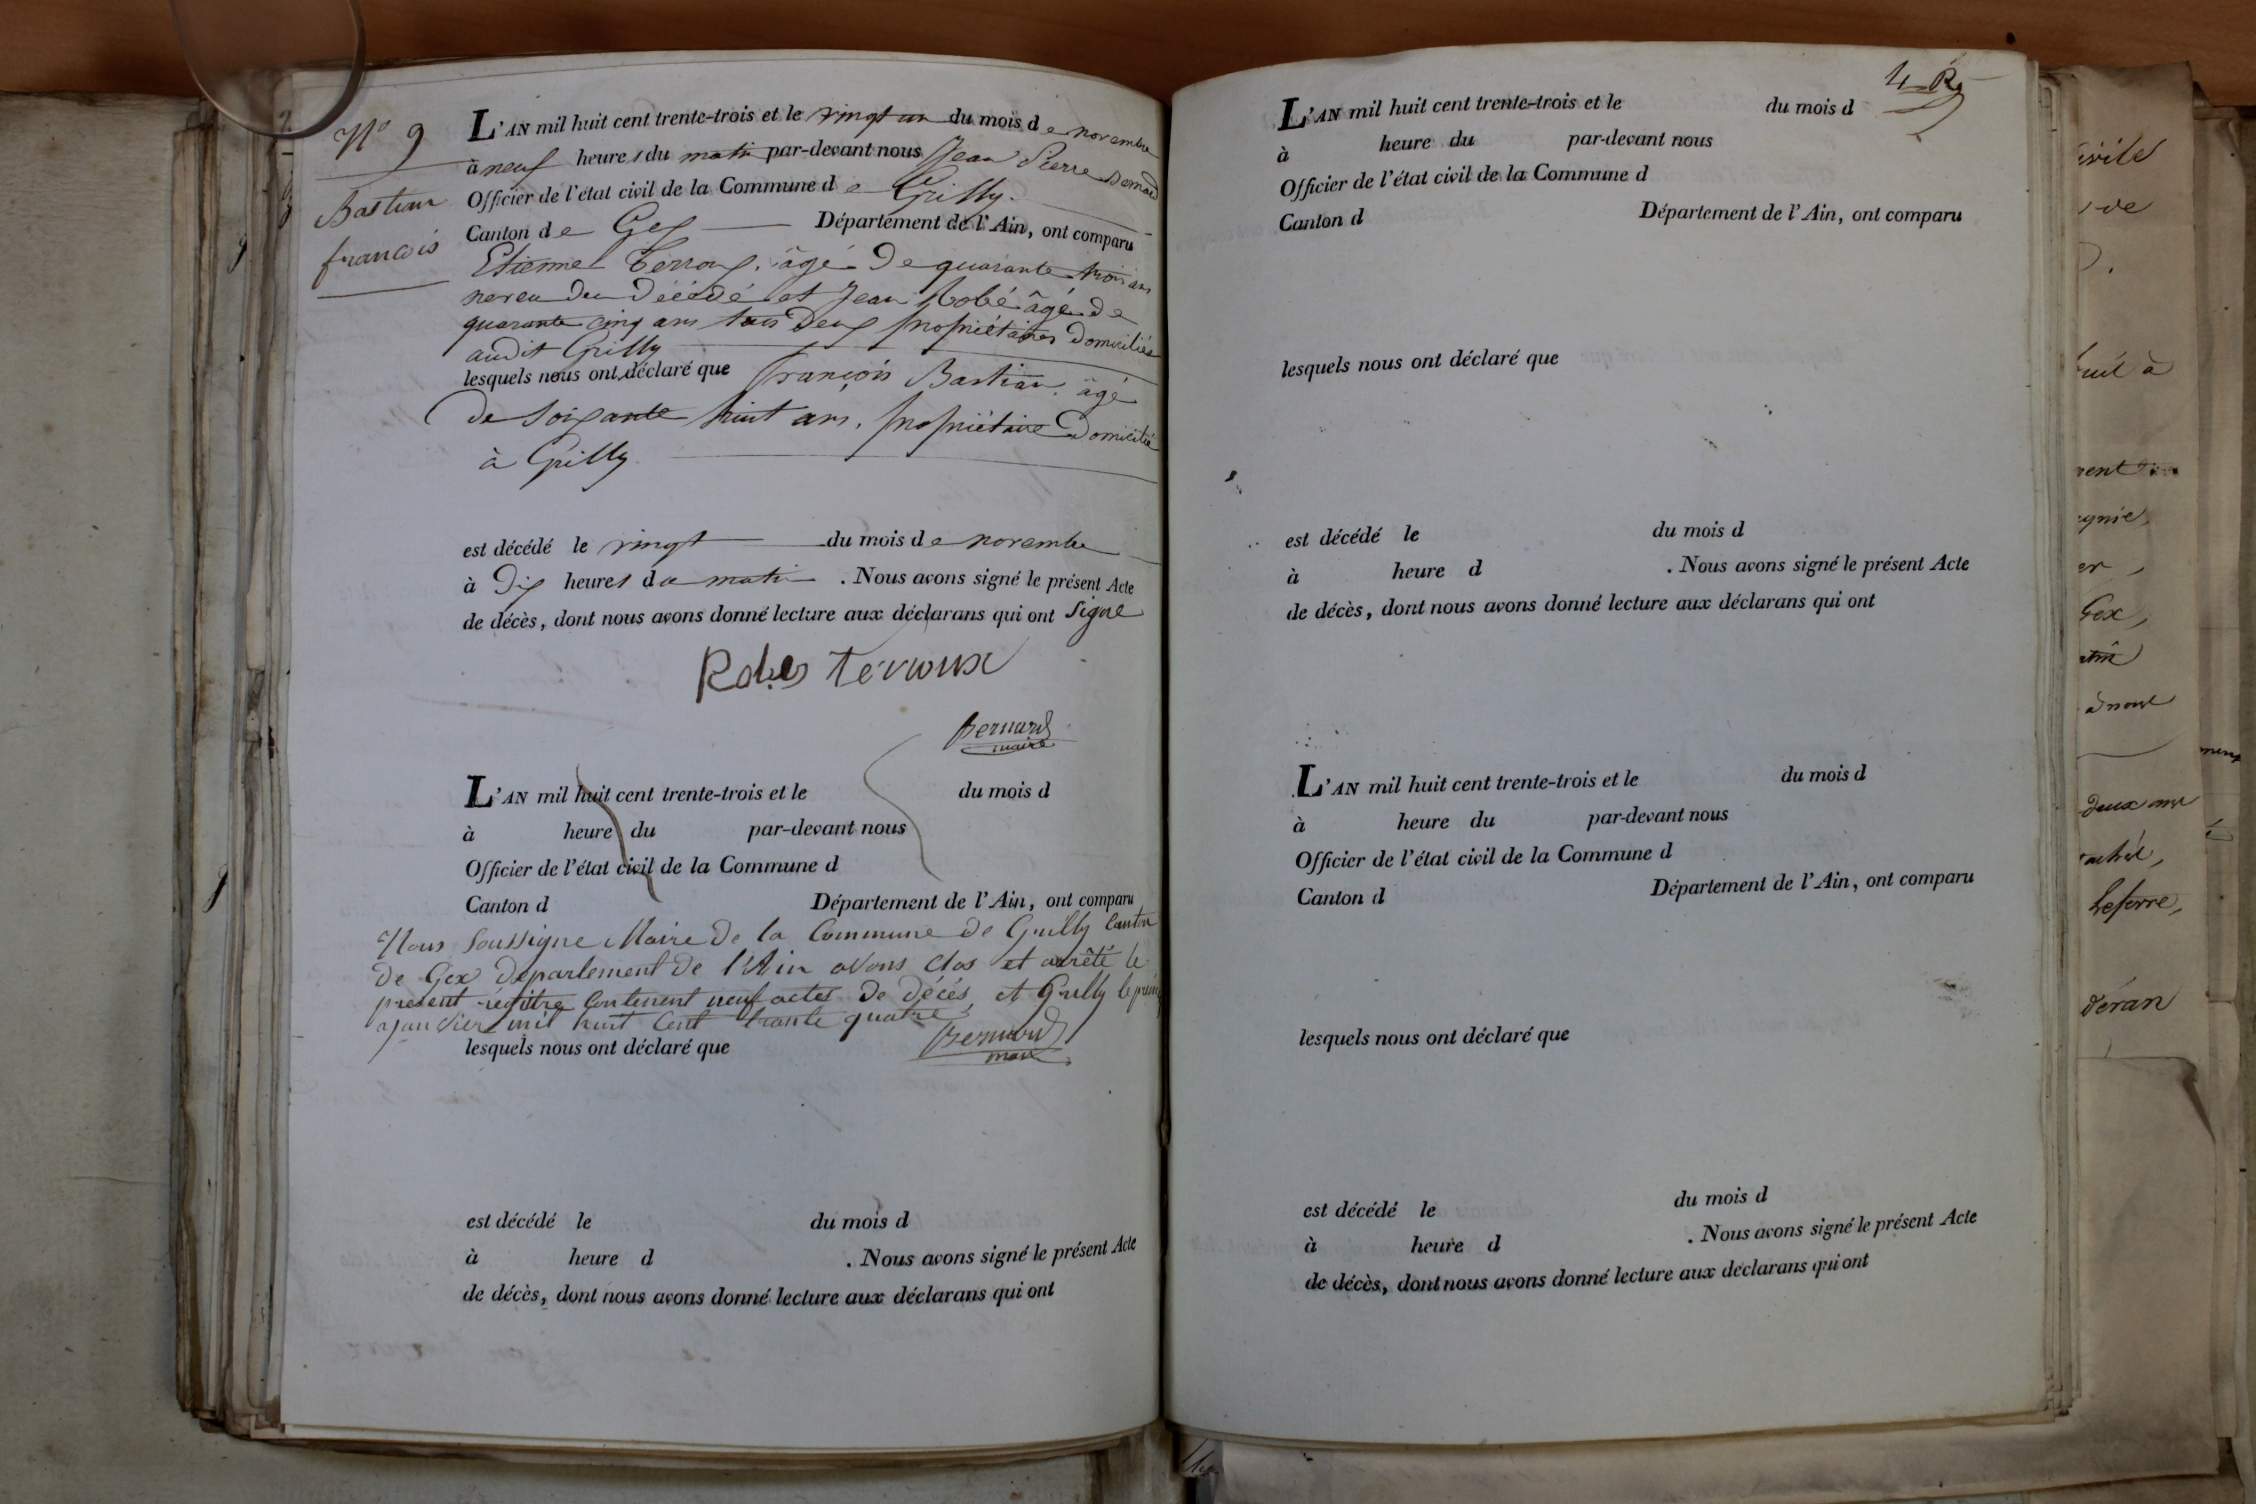 N° 9
Bastian
françois
L'AN mil huit cent trente-trois et le vingt un du mois de novembre
à neuf heures du matin par-devant nous Jean Pierre Bernard
Officier de l'état civil de la Commune de Grilly.
Canton de Gex Département de l'Ain, ont comparu
Etienne Terroux, âgé de quarante trois ans
neveu du décédé et Jean Robé âgé de
quarante cinq ans tous deux propriétaires domiciliés
audit Grilly
lesquels nous ont déclaré que françois Bastian, âgé
de soixante huit ans, propriétaire domicilié
à Grilly
est décédé le vingt du mois de novembre
à Dix heures du matin . Nous avons signé le présent Acte
de décès, dont nous avons donné lecture aux déclarans qui ont signé
Robes Terroux
Bernard
maire
L'AN mil huit cent trente-trois et le du mois d
à heure du par-devant nous
Officier de l'état civil de la Commune d
Canton d Département de l'Ain, ont comparu
Nous Soussigne Maire de la Commune de Grilly Canton
de Gex departement de l'Ain avons clos et arrêté le
present régitre contenent neuf actes de décés, et Grilly le
janvier mil huit cent trante quatre
Bernard
maire
lesquels nous ont déclaré que
est décédé le du mois d
à heure d . Nous avons signé le présent Acte
de décès, dont nous avons donné lecture aux déclarans qui ont
4
L'AN mil huit cent trente-trois et le du mois d
à heure du par-devant nous
Officier de l'état civil de la Commune d
Canton d Département de l'Ain, ont comparu
lesquels nous ont déclaré que
est décédé le du mois d
à heure d . Nous avons signé le présent Acte
de décès, dont nous avons donné lecture aux déclarans qui ont
L'AN mil huit cent trente-trois et le du mois d
à heure du par-devant nous
Officier de l'état civil de la Commune d
Canton d Département de l'Ain, ont comparu
lesquels nous ont déclaré que
est décédé le du mois d
à heure d . Nous avons signé le présent Acte
de décès, dont nous avons donné lecture aux déclarans qui ont